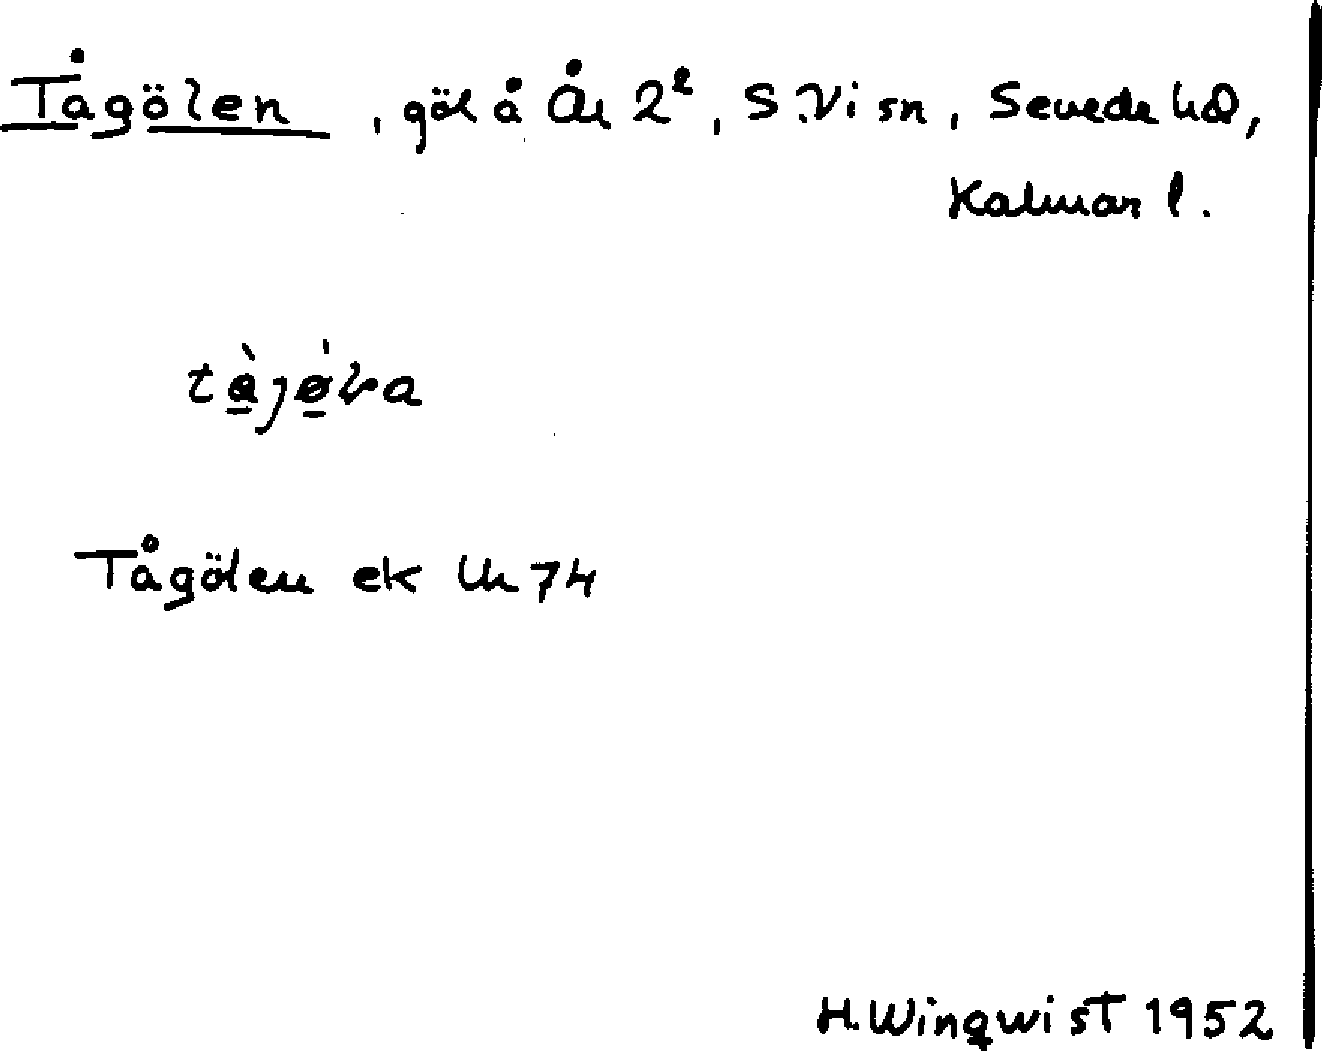 Tågölen, göl å År 2², S.Vi sn, Sevede hd,
Kalmar l.
Tågölen ek 74
H.Winqwist 1952